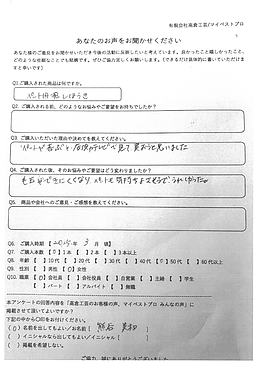 有限会社高倉工芸/マイベストプロ
あなたのお声をお聞かせください
あなた様のご意見をお聞かせいただき今後の活動に反映したいと考えています。良かったこと嬉しかったこと、
どのような些細なことでも結構です。ぜひご協力宜しくお願いします。(できるだけ具体的に書いていただけま
すと幸いです)
Q1. ご購入された商品は何ですか。
ペット用
Q2. ご購入される前、どのようなお悩みやご要望をお持ちでしたか?
Q3. ご購入いただいた理由や決めてを教えてください。
ペットが喜ぶと
見て 買おうと思いました
Q4. ご購入された後、そのお悩みやご要望はどう変わりましたか?
毛玉ができにくくなり ペットも気持ちよさそうで うれしかった。
Q5. 商品や会社へのご意見・ご感想を教えてください。
Q6. ご購入時期 【2015年 3 月 頃】
Q7. ご購入本数 【0】1本 【 】2本 【 】3本以上
Q8. 年齢 【 】10代 【 】20代 【 】30代 【 】40代 【 】50代 【0】60代
Q9. 性別 【 】男性 【0】女性
Q10. 職業 【0】会社員 【 】会社役員 【 】自営業 【 】主婦 【 】学生
【 】パート 【 】アルバイト 【 】無職
本アンケートの回答内容を「高倉工芸のお客様の声、マイベストプロ みんなの声」に
掲載させて頂いてよいですか?
下記の中から〇印をお付けください。
(〇)名前を出してもよい/お名前【
( )イニシャルなら出してもよい/イニシャル【 】
( )掲載を希望しない。
ご協力、誠にありがとうございました